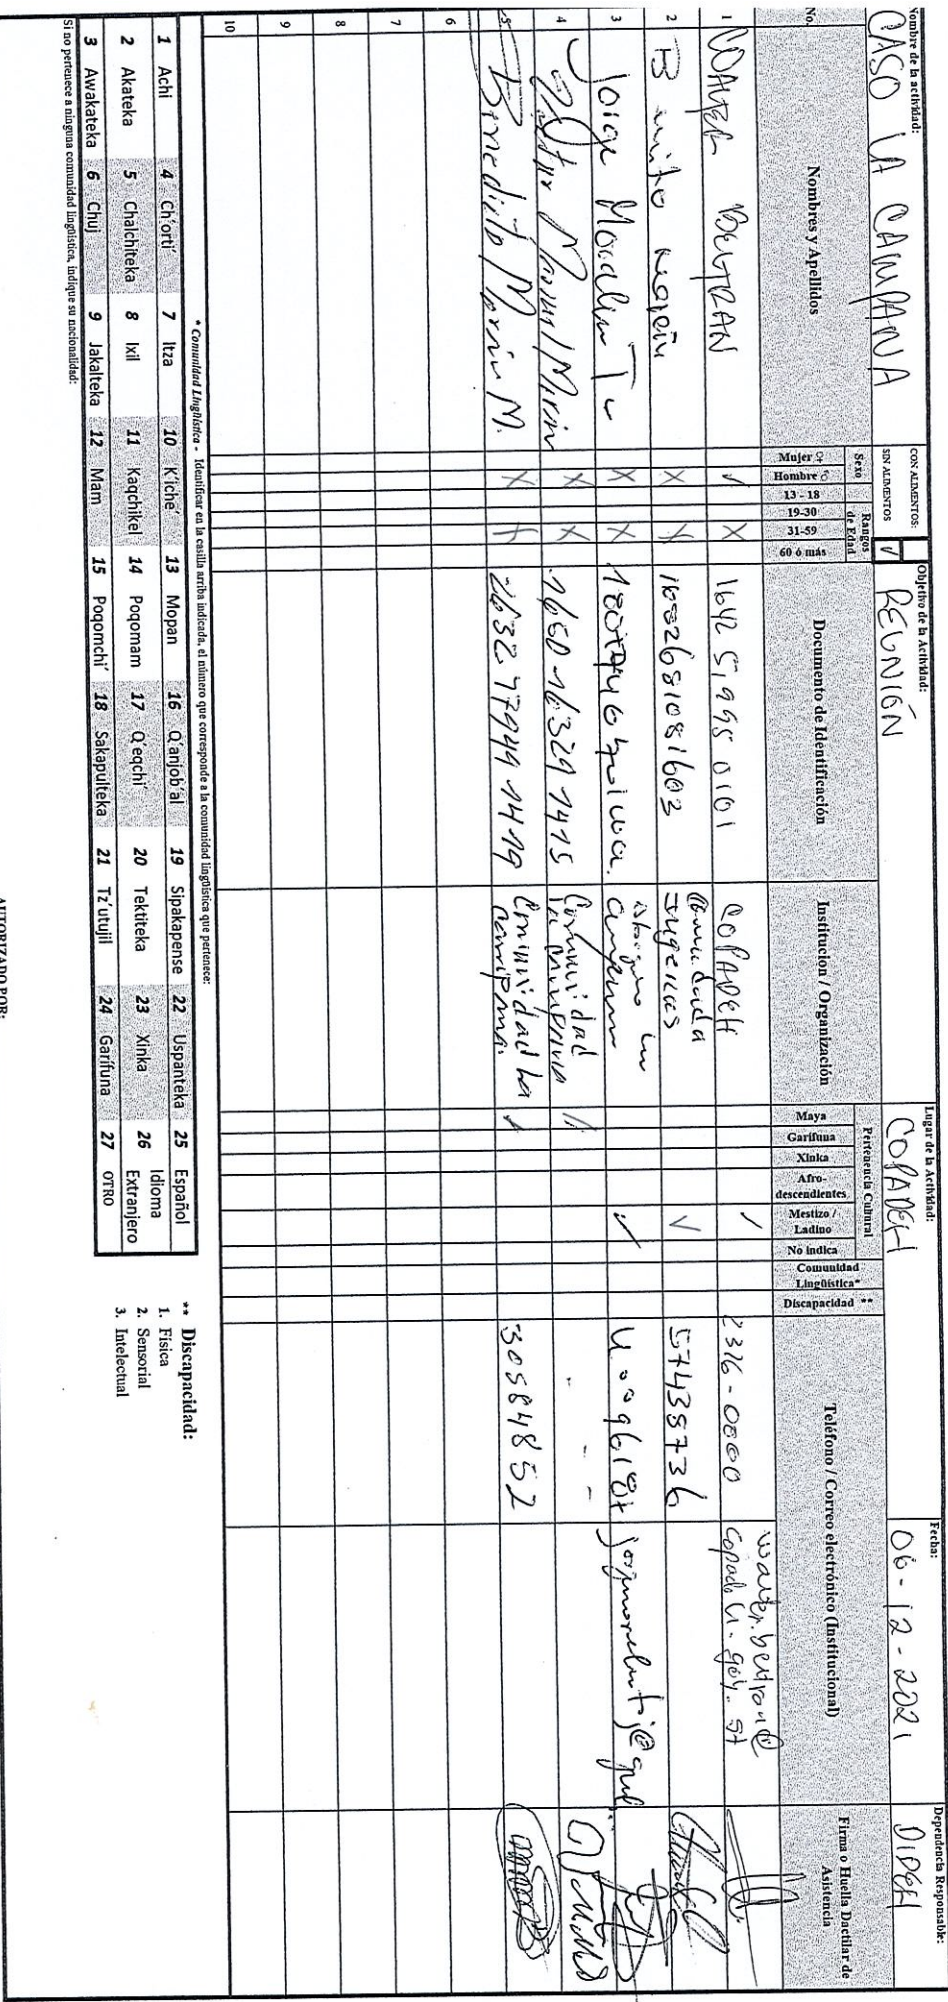 Nombre de la actividad:
CASO LA CAMPANA
CON ALIMENTOS:
SIN ALIMENTOS ✓
Objetivo de la Actividad:
REUNIÓN
Lugar de la Actividad:
COPADEH
Fecha:
06-12-2021
Dependencia Responsable:
DIDEH
No.
Nombres y Apellidos
Sexo
Mujer ♀
Hombre ♂
Rangos de Edad
13 - 18
19-30
31-59
60 ó más
Documento de Identificación
Institucion / Organización
Pertenencia Cultural
Maya
Garífuna
Xinka
Afro-descendientes
Mestizo / Ladino
No indica
Comunidad Lingüística*
Discapacidad **
Teléfono / Correo electrónico (Institucional)
Firma o Huella Dactilar de Asistencia
1 WALTER BELTRAN ✓ X 1642 51995 0101 COPADEH ✓ 2316-0000 walter.beltran@
copadeh.gob.gt
2 X X 1602681081603 ✓ 57438736
3 Jorge X X ✓
4 X X 1660 16329 1415 Comunidad
la Campana
5 Benedicto M. X X 2632 77949 1419 Comunidad la
campana. 30584852
6
7
8
9
10
* Comunidad Lingüística - Identificar en la casilla arriba indicada, el número que corresponde a la comunidad lingüística que pertenece:
1 Achi 4 Ch'orti' 7 Itza 10 K'iche' 13 Mopan 16 Q'anjob'al 19 Sipakapense 22 Uspanteka 25 Español
2 Akateka 5 Chalchiteka 8 Ixil 11 Kaqchikel 14 Poqomam 17 Q'eqchi' 20 Tektiteka 23 Xinka 26 Idioma Extranjero
3 Awakateka 6 Chuj 9 Jakalteka 12 Mam 15 Poqomchi' 18 Sakapulteka 21 Tz'utujil 24 Garífuna 27 OTRO
Si no pertenece a ninguna comunidad lingüística, indique su nacionalidad:
** Discapacidad:
1. Física
2. Sensorial
3. Intelectual
AUTORIZADO POR: